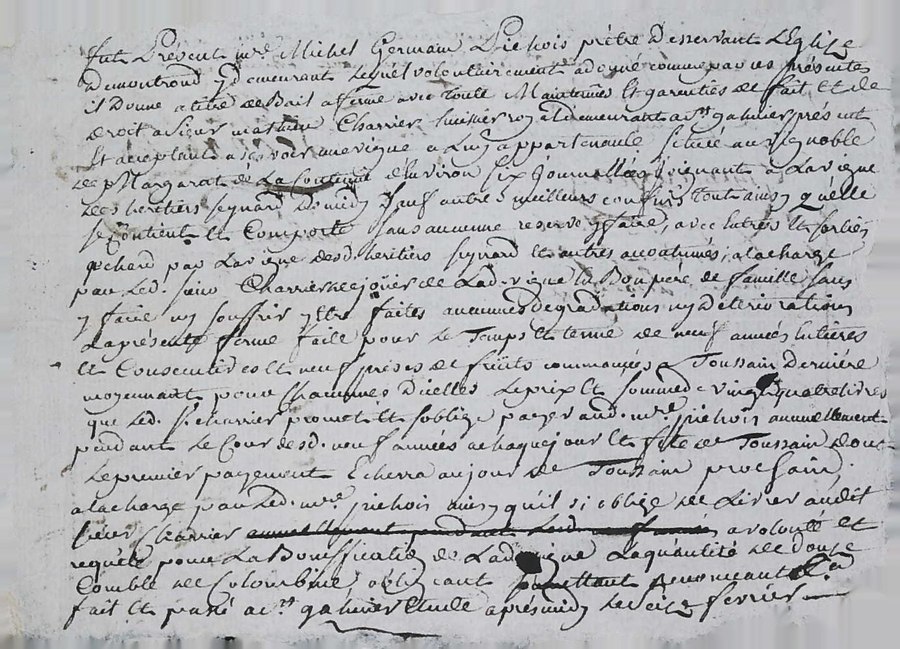 fut Présent mre Michel Germain Piehois prêtre Desservant L'Eglize
De montrond y demeurant Lequel volontairement a donné comme par ces présentes
il Donne a titre de Bail a ferme avec toute Maintenües Et garenties de fait Et de
droit a Sieur mathieu Charrier huissier royal demeurant a st galmier présent
Et acceptant a sçavoir une vigne a Luy appartenante Scituée au vignoble
de Margarat de La fontaine d'Environ Six Journallées Joignant a La vigne
des heritiers peynard De midy Sauf autres meilleurs confins tout ainsy quelle
Se Contient Et Comporte Sans aucunne reserve y faire, avec Entrés Et Sorties
par La vigne desd. heritiers peynard Et autres accoutumés, a La charge
par Led. Sieur Charrier de jouir de Lad. vigne En Bon père de famille Sans
y faire ny Souffrir y Etre faites aucunnes degradations ny deteriorations
La présente ferme faite pour Le Temps Et terme de neuf années Entières
Et Consecutives Et neuf prises de fruits commancées a Toussain Dernière
moyennant pour Chacunnes D'icelles Le prix Et Somme de vingt quatre Livres
que Led. Sr. charrier promet Et s'oblige payer aud. mre piehois annuellement
pendant Le Cour desd. neuf années a chaque jour Et fête de Toussain Dont
Le premier payement Echerra au jour de Toussain prochain.
a la charge par Led. mre piehois ainsy qu'il s'y oblige de Livrer audit
Sieur Charrier annuellement pendant Led. neuf années a volonté Et
requête pour La Bonification de Lad. vigne La quantité de douze
Comble de Colombine, obligeant Soumettant Renonceant
fait Et passé a st galmier Etude après midy Le seize fevrier